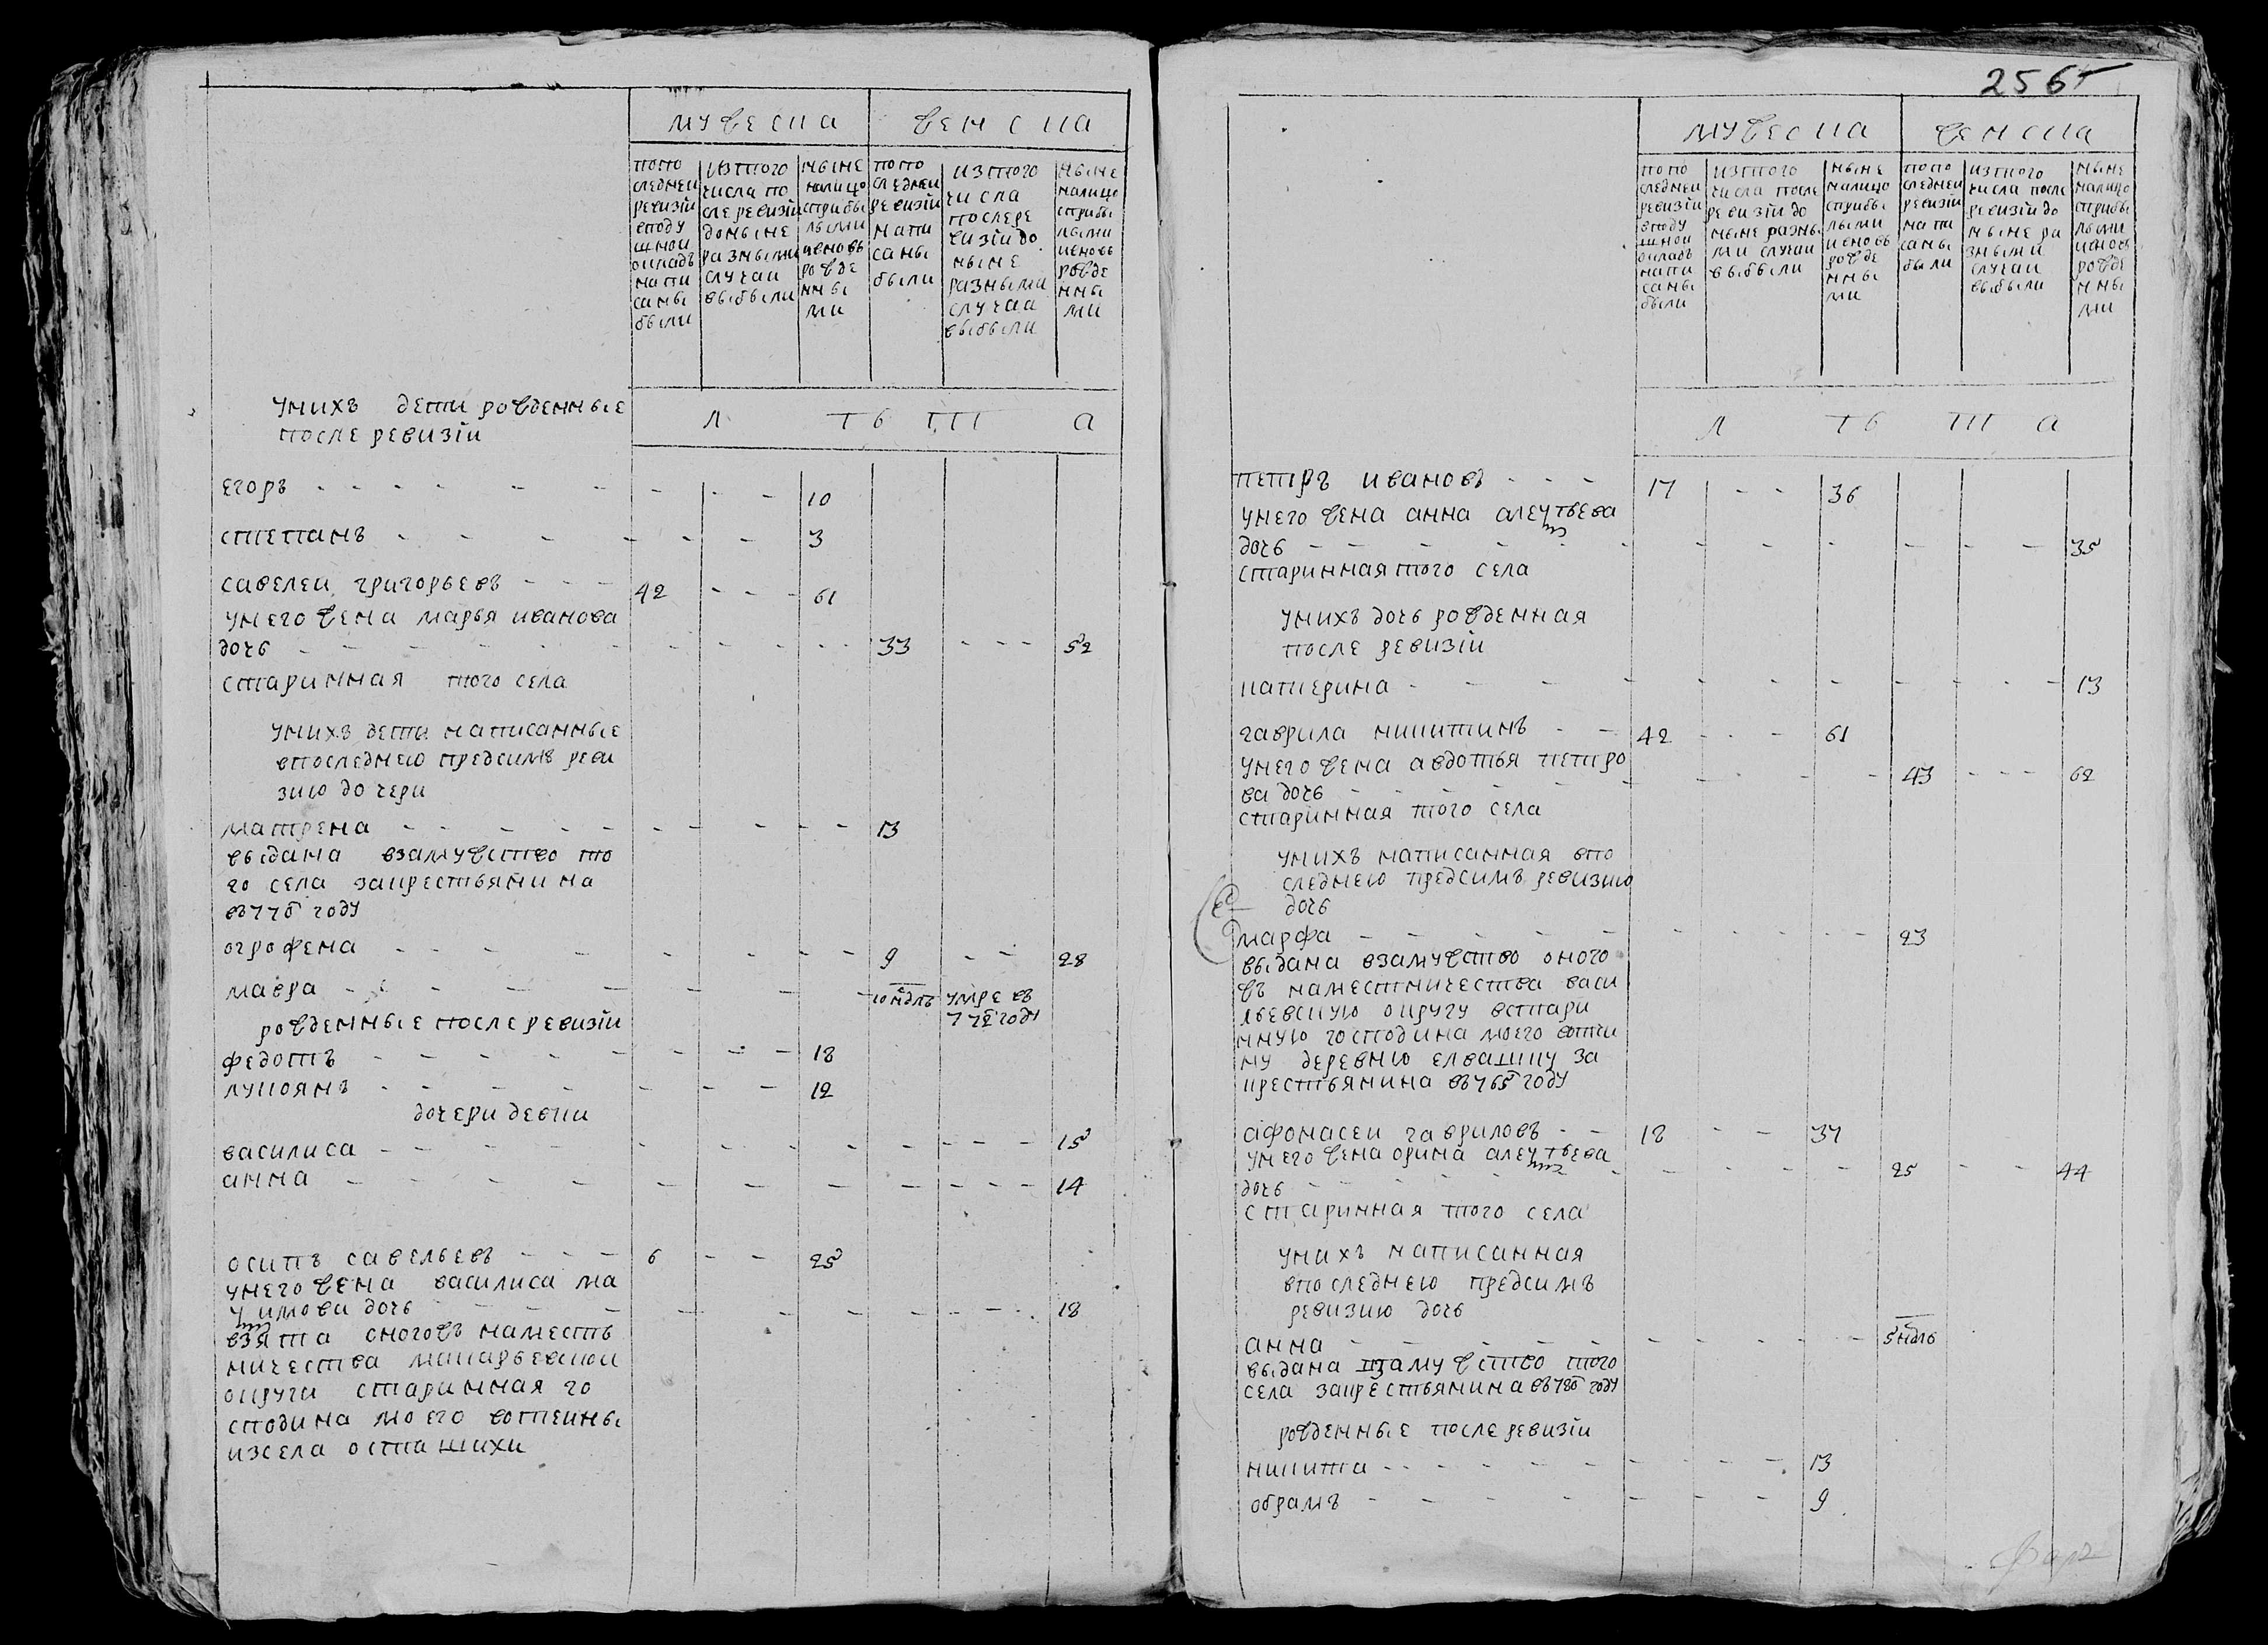 мужеска
женска
попо
следнеи
ревизiи
вподу
шнои
окладъ
напи
саны
были
изтого
числа по
сле ревизiи
доныне
разными
случаи
выбыли
ныне
налицо
сприбы
лыми
ивновь
рожде
нны
ми
попо
следнеи
ревизiи
напи
саны
были
изтого
числа
послере
визiи до
ныне
разными
случаи
выбыли
ныне
налицо
сприбы
лыми
ивновь
рожде
нны
ми
л ѣ т а
унихъ дети рожденные
после ревизiи
егоръ - - - 10
степанъ - - - 3
савелеи григорьевъ - - - 42 - - - 61
унего жена марья иванова
дочь - - - 33 - - - 52
старинная того села
унихъ дети написанные
впоследнею предсимъ реви
зию дочери
матрена - - - 13
выдана взамужство то
го села закрестьянина
в778 году
огрофена - - - 9 - - 28
мавра - - - 10 недль умре въ
772 году
рожденные после ревизiи
федотъ - - - 18
лукоянъ - - - 12
дочери девки
василиса - - - 15
анна - - - 14
осипъ савельевъ - - - 6 - - 25
унего жена василиса ма
уимова дочь - - - 18
взята оногожъ наместъ
ничества макарьевскои
округи старинная го
сподина моего вотчины
изсела осташихи
256
мужеска
женска
попо
следнеи
ревизiи
вподу
шнои
окладъ
напи
саны
были
изтого
числа после
ревизiи до
ныне разны
ми случаи
выбыли
ныне
налицо
сприбы
лыми
ивновь
рожде
нны
ми
попо
следнеи
ревизiи
напи
саны
были
изтого
числа после
ревизiи до
ныне ра
зными
случаи
выбыли
ныне
налицо
сприбы
лыми
ивновь
рожде
нны
ми
л ѣ т а
петръ ивановъ - - - 17 - - 36
унего жена анна алеутьева
дочь - - - 35
старинная того села
унихъ дочь рожденная
после ревизiи
катерина - - - 13
гаврила никитинъ - - 42 - - 61
унего жена авдотья петро
ва дочь - - - 43 - - - 62
старинная того села
унихъ написанная впо
следнею предсимъ ревизию
дочь
марфа - - - 23
выдана взамужство оного
жъ наместничества васи
льевскую округу встари
нную господина моего вотчи
ну деревню елвашку за
крестьянина въ765 году
афонасеи гавриловъ - - 18 - - 37
унего жена орина алеутьева
дочь - - - 25 - - 44
старинная того села
унихъ написанная
впоследнею предсимъ
ревизию дочь
анна - - - 5 недль
выдана взамужство того
села закрестьянина въ780 году
рожденные после ревизiи
никита - - - 13
обрамъ - - - 9